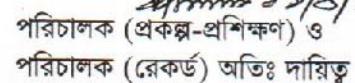 পরিচালক (প্রকল্প-প্রশিক্ষণ) ও
পরিচালক (রেকর্ড) অতিঃ দায়িত্ব